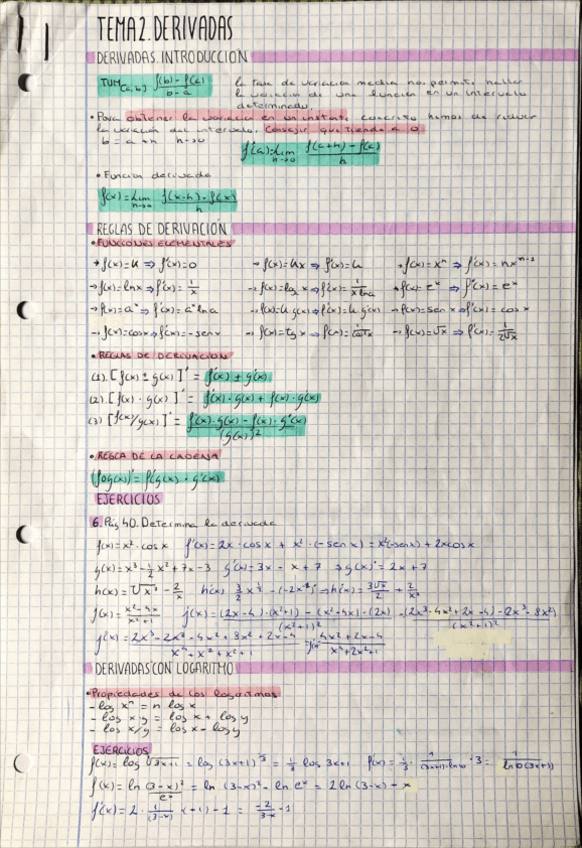 TEMA 2. DERIVADAS
DERIVADAS. INTRODUCCIÓN
TVM[a,b] f(b)-f(a) / b-a
la tasa de variación media nos permite hallar
la variación de una función en un intervalo
determinado.
• Para obtener la variación en un instante concreto hemos de reducir
la variación del intervalo. Conseguir que tienda a 0
b = a+h h→0
f'(a)=lim h→0 f(a+h)-f(a) / h
• Función derivada
f'(x)=lim h→0 f(x+h)-f(x) / h
REGLAS DE DERIVACIÓN
• FUNCIONES ELEMENTALES
→ f(x)=k ⇒ f'(x)=0 → f(x)=kx ⇒ f'(x)=k → f(x)=x^n ⇒ f'(x)=nx^n-1
→ f(x)=lnx ⇒ f'(x)=1/x → f(x)=log_a x ⇒ f'(x)=1/xlna → f(x)=e^x ⇒ f'(x)=e^x
→ f(x)=a^x ⇒ f'(x)=a^x lna → f(x)=k·g(x) ⇒ f'(x)=k·g'(x) → f(x)=sen x ⇒ f'(x)=cos x
→ f(x)=cosx ⇒ f'(x)=-senx → f(x)=tg x ⇒ f'(x)= → f(x)=√x ⇒ f'(x)=1/2√x
• REGLAS DE DERIVACIÓN
(1). [f(x) ± g(x)]' = f'(x) ± g'(x)
(2). [f(x) · g(x)]' = f'(x) · g(x) + f(x) · g'(x)
(3) [f(x)/g(x)]' = f'(x)·g(x) - f(x)·g'(x) / (g(x))²
• REGLA DE LA CADENA
(fog(x))' = f'(g(x)) · g'(x)
EJERCICIOS
6. Pág 40. Determina la derivada
f(x)=x²·cosx f'(x)=2x·cosx + x²·(-sen x) = x²(-senx) + 2xcosx
g(x)=x³-1/2x²+7x-3 g'(x)=3x - x + 7 ⇒ g'(x)=2x+7
h(x)=√x³ - 2/x h'(x) 3/2 x^1/2 - (-2x^-2) ⇒ h'(x)=3√x/2 + 2/x²
f(x)=x²-4x / x²+1 f'(x)=(2x-4)·(x²+1) - (x²-4x)·(2x) / (x²+1)² = (2x³-4x²+2x-4) - (2x³-8x²) / (x²+1)²
f'(x)=2x³-2x³-4x²+8x²+2x-4 / x⁴+x²+x²+1 = 4x²+2x-4 / x⁴+2x²+1
DERIVADAS CON LOGARITMO
• Propiedades de los logaritmos
- log x^n = n log x
- log x·y = log x + log y
- log x/y = log x - log y
EJERCICIOS
f(x)=log ∛3x+1 = log (3x+1)^1/3 = 1/3 log 3x+1 f'(x)=1/3 · 1/(3x+1)·ln10 · 3 = 1/ln10(3x+1)
f(x)=ln (3-x)²/e^x = ln (3-x)² - ln e^x = 2 ln (3-x) - x
f'(x)= 2 · 1/(3-x) · (-1) - 1 = -2/3-x - 1